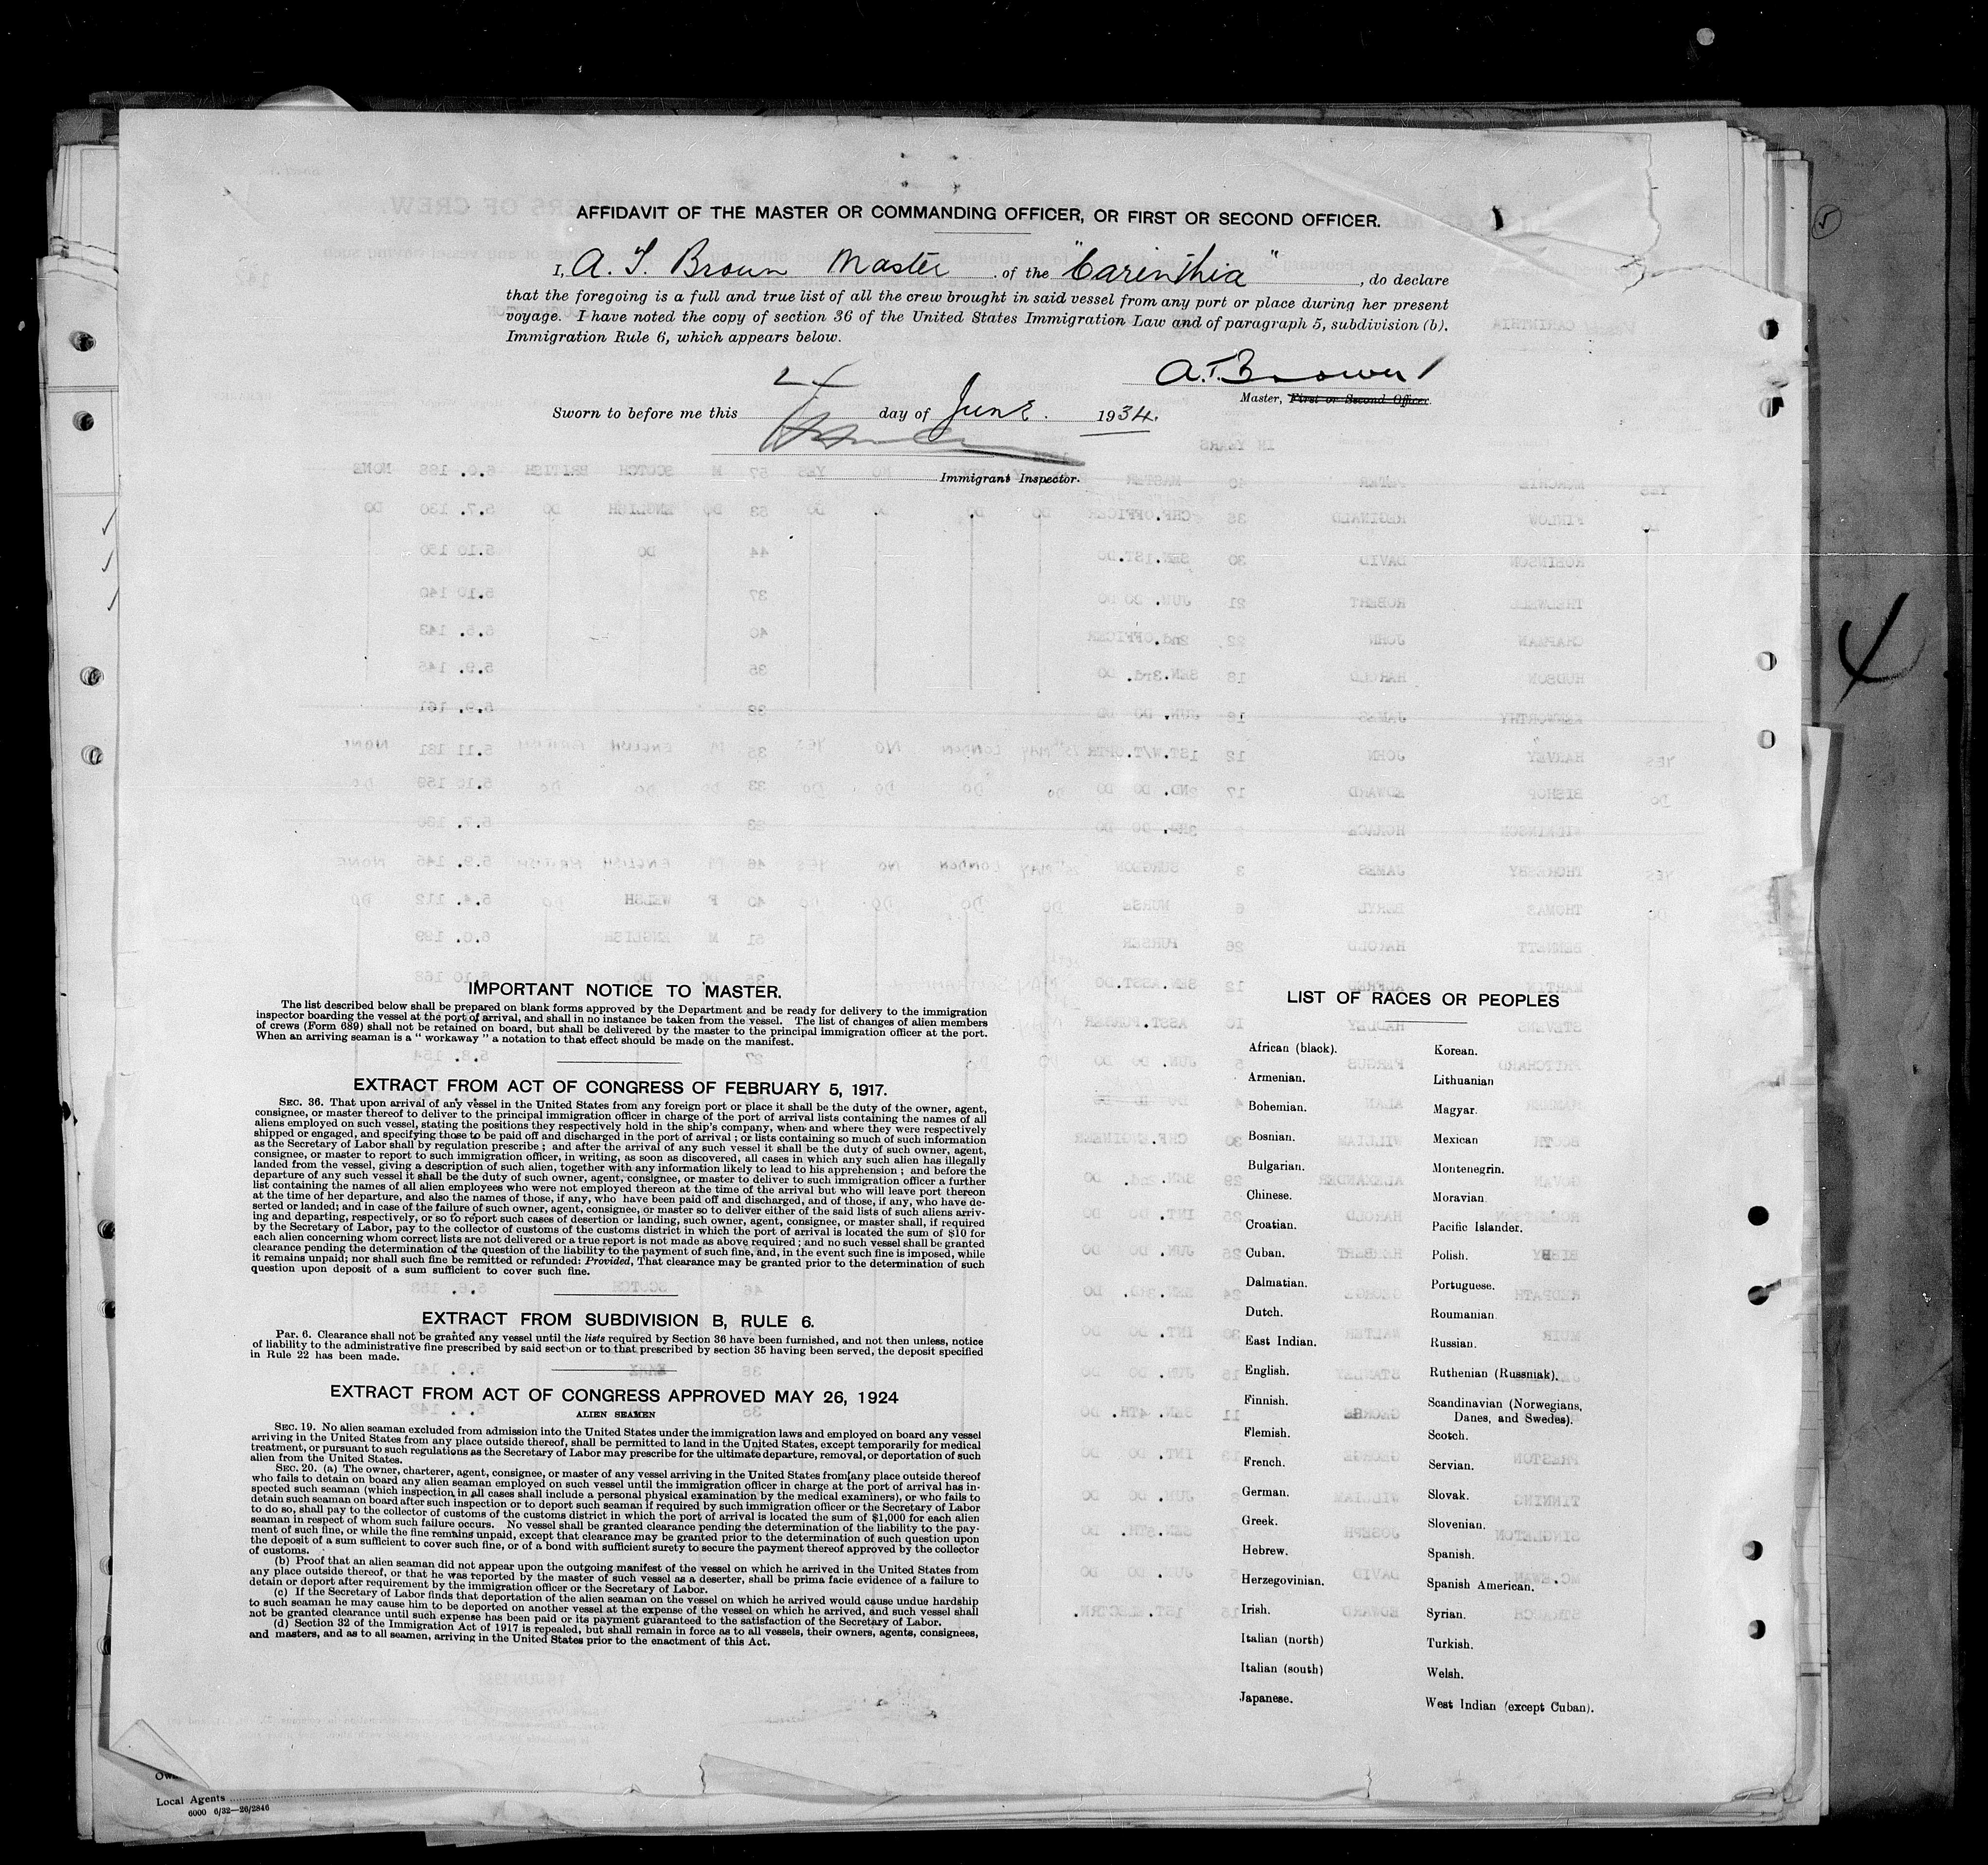 AFFIDAVIT OF THE MASTER OR COMMANDING OFFICER, OR FIRST OR SECOND OFFICER.
I, A. T. Brown Master of the "Carinthia", do declare
that the foregoing is a full and true list of all the crew brought in said vessel from any port or place during her present
voyage. I have noted the copy of section 36 of the United States Immigration Law and of paragraph 5, subdivision (b).
Immigration Rule 6, which appears below.
A.T. Brown
Master, First or Second Officer.
Sworn to before me this day of June. 1934.
Immigrant Inspector.
IMPORTANT NOTICE TO MASTER.
The list described below shall be prepared on blank forms approved by the Department and be ready for delivery to the immigration
inspector boarding the vessel at the port of arrival, and shall in no instance be taken from the vessel. The list of changes of alien members
of crews (Form 689) shall not be retained on board, but shall be delivered by the master to the principal immigration officer at the port.
When an arriving seaman is a " workaway " a notation to that effect should be made on the manifest.
EXTRACT FROM ACT OF CONGRESS OF FEBRUARY 5, 1917.
SEC. 36. That upon arrival of any vessel in the United States from any foreign port or place it shall be the duty of the owner, agent,
consignee, or master thereof to deliver to the principal immigration officer in charge of the port of arrival lists containing the names of all
aliens employed on such vessel, stating the positions they respectively hold in the ship's company, when and where they were respectively
shipped or engaged, and specifying those to be paid off and discharged in the port of arrival ; or lists containing so much of such information
as the Secretary of Labor shall by regulation prescribe ; and after the arrival of any such vessel it shall be the duty of such owner, agent,
consignee, or master to report to such immigration officer, in writing, as soon as discovered, all cases in which any such alien has illegally
landed from the vessel, giving a description of such alien, together with any information likely to lead to his apprehension ; and before the
departure of any such vessel it shall be the duty of such owner, agent, consignee, or master to deliver to such immigration officer a further
list containing the names of all alien employees who were not employed thereon at the time of the arrival but who will leave port thereon
at the time of her departure, and also the names of those, if any, who have been paid off and discharged, and of those, if any, who have de-
serted or landed; and in case of the failure of such owner, agent, consignee, or master so to deliver either of the said lists of such aliens arriv-
ing and departing, respectively, or so to report such cases of desertion or landing, such owner, agent, consignee, or master shall, if required
by the Secretary of Labor, pay to the collector of customs of the customs district in which the port of arrival is located the sum of $10 for
each alien concerning whom correct lists are not delivered or a true report is not made as above required ; and no such vessel shall be granted
clearance pending the determination of the question of the liability to the payment of such fine, and, in the event such fine is imposed, while
it remains unpaid; nor shall such fine be remitted or refunded: Provided, That clearance may be granted prior to the determination of such
question upon deposit of a sum sufficient to cover such fine.
EXTRACT FROM SUBDIVISION B, RULE 6.
Par. 6. Clearance shall not be granted any vessel until the lists required by Section 36 have been furnished, and not then unless, notice
of liability to the administrative fine prescribed by said section or to that prescribed by section 35 having been served, the deposit specified
in Rule 22 has been made.
EXTRACT FROM ACT OF CONGRESS APPROVED MAY 26, 1924
ALIEN SEAMEN
SEC. 19. No alien seaman excluded from admission into the United States under the immigration laws and employed on board any vessel
arriving in the United States from any place outside thereof, shall be permitted to land in the United States, except temporarily for medical
treatment, or pursuant to such regulations as the Secretary of Labor may prescribe for the ultimate departure, removal, or deportation of such
alien from the United States.
SEC. 20. (a) The owner, charterer, agent, consignee, or master of any vessel arriving in the United States from any place outside thereof
who fails to detain on board any alien seaman employed on such vessel until the immigration officer in charge at the port of arrival has in-
spected such seaman (which inspection in all cases shall include a personal physical examination by the medical examiners), or who fails to
detain such seaman on board after such inspection or to deport such seaman if required by such immigration officer or the Secretary of Labor
to do so, shall pay to the collector of customs of the customs district in which the port of arrival is located the sum of $1,000 for each alien
seaman in respect of whom such failure occurs. No vessel shall be granted clearance pending the determination of the liability to the pay-
ment of such fine, or while the fine remains unpaid, except that clearance may be granted prior to the determination of such question upon
the deposit of a sum sufficient to cover such fine, or of a bond with sufficient surety to secure the payment thereof approved by the collector
of customs.
(b) Proof that an alien seaman did not appear upon the outgoing manifest of the vessel on which he arrived in the United States from
any place outside thereof, or that he was reported by the master of such vessel as a deserter, shall be prima facie evidence of a failure to
detain or deport after requirement by the immigration officer or the Secretary of Labor.
(c) If the Secretary of Labor finds that deportation of the alien seaman on the vessel on which he arrived would cause undue hardship
to such seaman he may cause him to be deported on another vessel at the expense of the vessel on which he arrived, and such vessel shall
not be granted clearance until such expense has been paid or its payment guaranteed to the satisfaction of the Secretary of Labor.
(d) Section 32 of the Immigration Act of 1917 is repealed, but shall remain in force as to all vessels, their owners, agents, consignees,
and masters, and as to all seamen, arriving in the United States prior to the enactment of this Act.
LIST OF RACES OR PEOPLES
African (black).
Armenian.
Bohemian.
Bosnian.
Bulgarian.
Chinese.
Croatian.
Cuban.
Dalmatian.
Dutch.
East Indian.
English.
Finnish.
Flemish.
French.
German.
Greek.
Hebrew.
Herzegovinian.
Irish.
Italian (north)
Italian (south)
Japanese.
Korean.
Lithuanian
Magyar.
Mexican
Montenegrin.
Moravian
Pacific Islander.
Polish.
Portuguese.
Roumanian
Russian.
Ruthenian (Russniak).
Scandinavian (Norwegians,
Danes, and Swedes).
Scotch.
Servian.
Slovak.
Slovenian.
Spanish.
Spanish American.
Syrian.
Turkish.
Welsh.
West Indian (except Cuban).
Local Agents
6000 6/32—26/2846
5
4